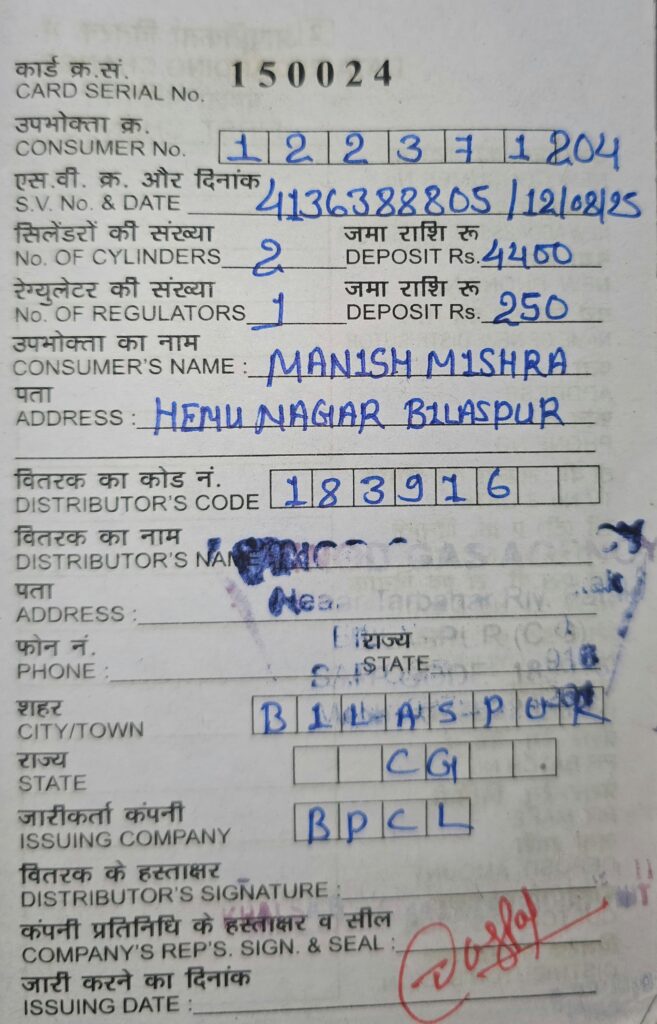 कार्ड क्र.सं. 150024
CARD SERIAL No.
उपभोक्ता क्र.
CONSUMER No. 122371204
एस.वी. क्र. और दिनांक
S.V. No. & DATE 4136388805 / 12/08/25
सिलेंडरों की संख्या जमा राशि रू
No. OF CYLINDERS 2 DEPOSIT Rs. 4400
रेग्युलेटर की संख्या जमा राशि रू
No. OF REGULATORS 1 DEPOSIT Rs. 250
उपभोक्ता का नाम
CONSUMER'S NAME : MANISH MISHRA
पता
ADDRESS : HEMU NAGAR BILASPUR
वितरक का कोड नं.
DISTRIBUTOR'S CODE 183916
वितरक का नाम
DISTRIBUTOR'S NAME
पता
ADDRESS : Tarbahar
फोन नं. राज्य
PHONE : STATE
शहर
CITY/TOWN BILASPUR
राज्य
STATE CG
जारीकर्ता कंपनी
ISSUING COMPANY BPCL
वितरक के हस्ताक्षर
DISTRIBUTOR'S SIGNATURE :
कंपनी प्रतिनिधि के हस्ताक्षर व सील
COMPANY'S REP'S. SIGN. & SEAL :
जारी करने का दिनांक
ISSUING DATE :